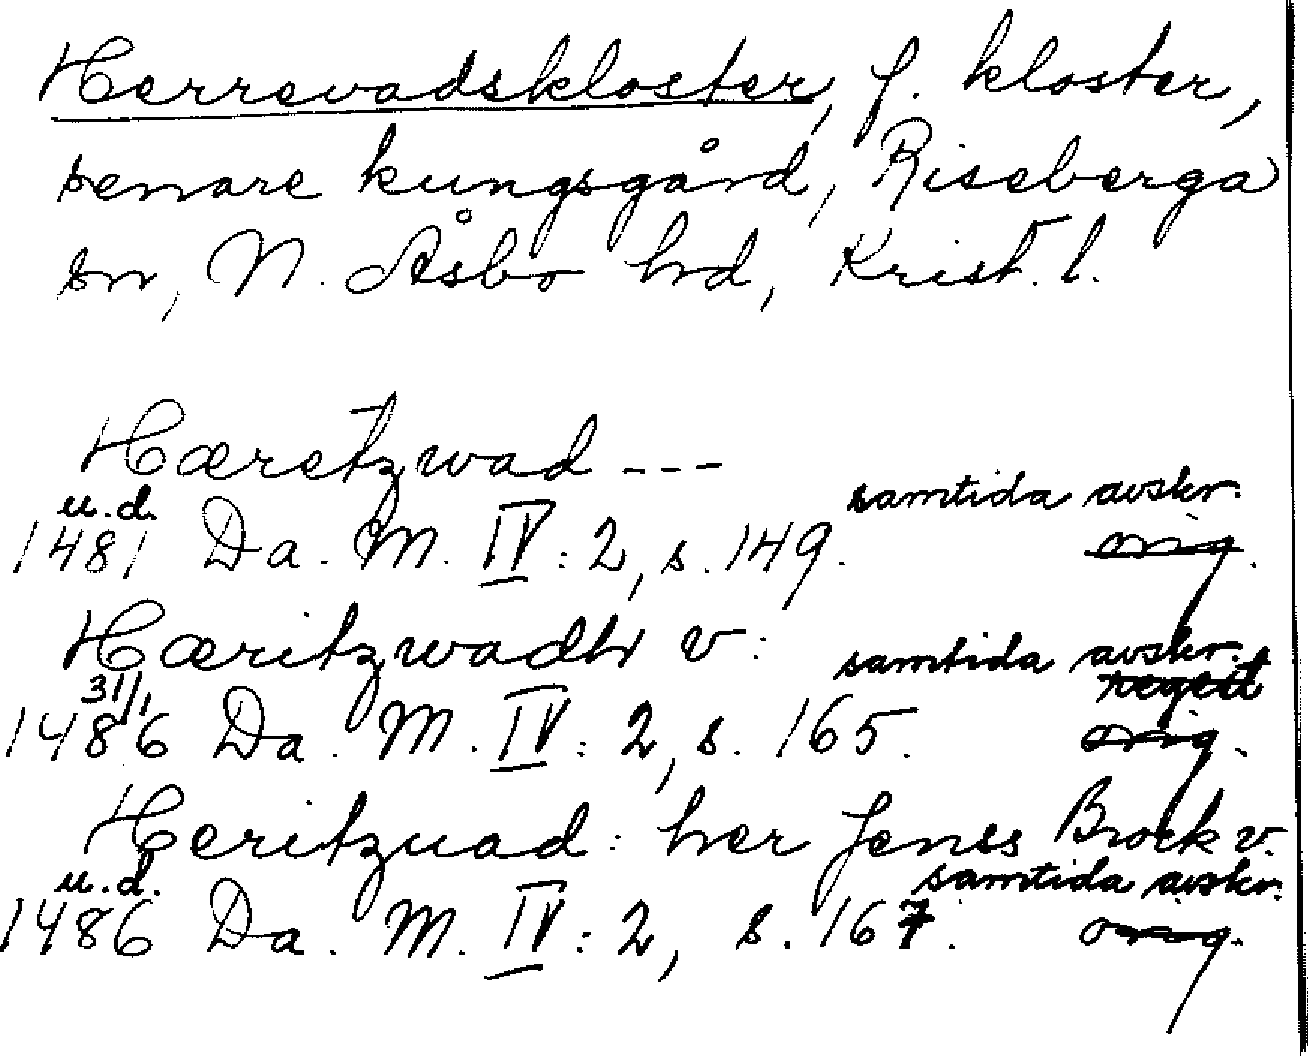 Herrevadskloster, f. kloster,
senare kungsgård, Riseberga
sn, N. Åsbo hd, Krist. l.
Hæretzwad ---
u.d. samtida avskr.
1481 Da. M. IV: 2, s. 149. orig.
Hæritzwadh v:
samtida avskr.
31/1 regest
1486 Da. M. IV: 2, s. 165. orig.
Heritzuad: her Jenes Brock v.
u.d. samtida avskr.
1486 Da. M. IV: 2, s. 167. orig.